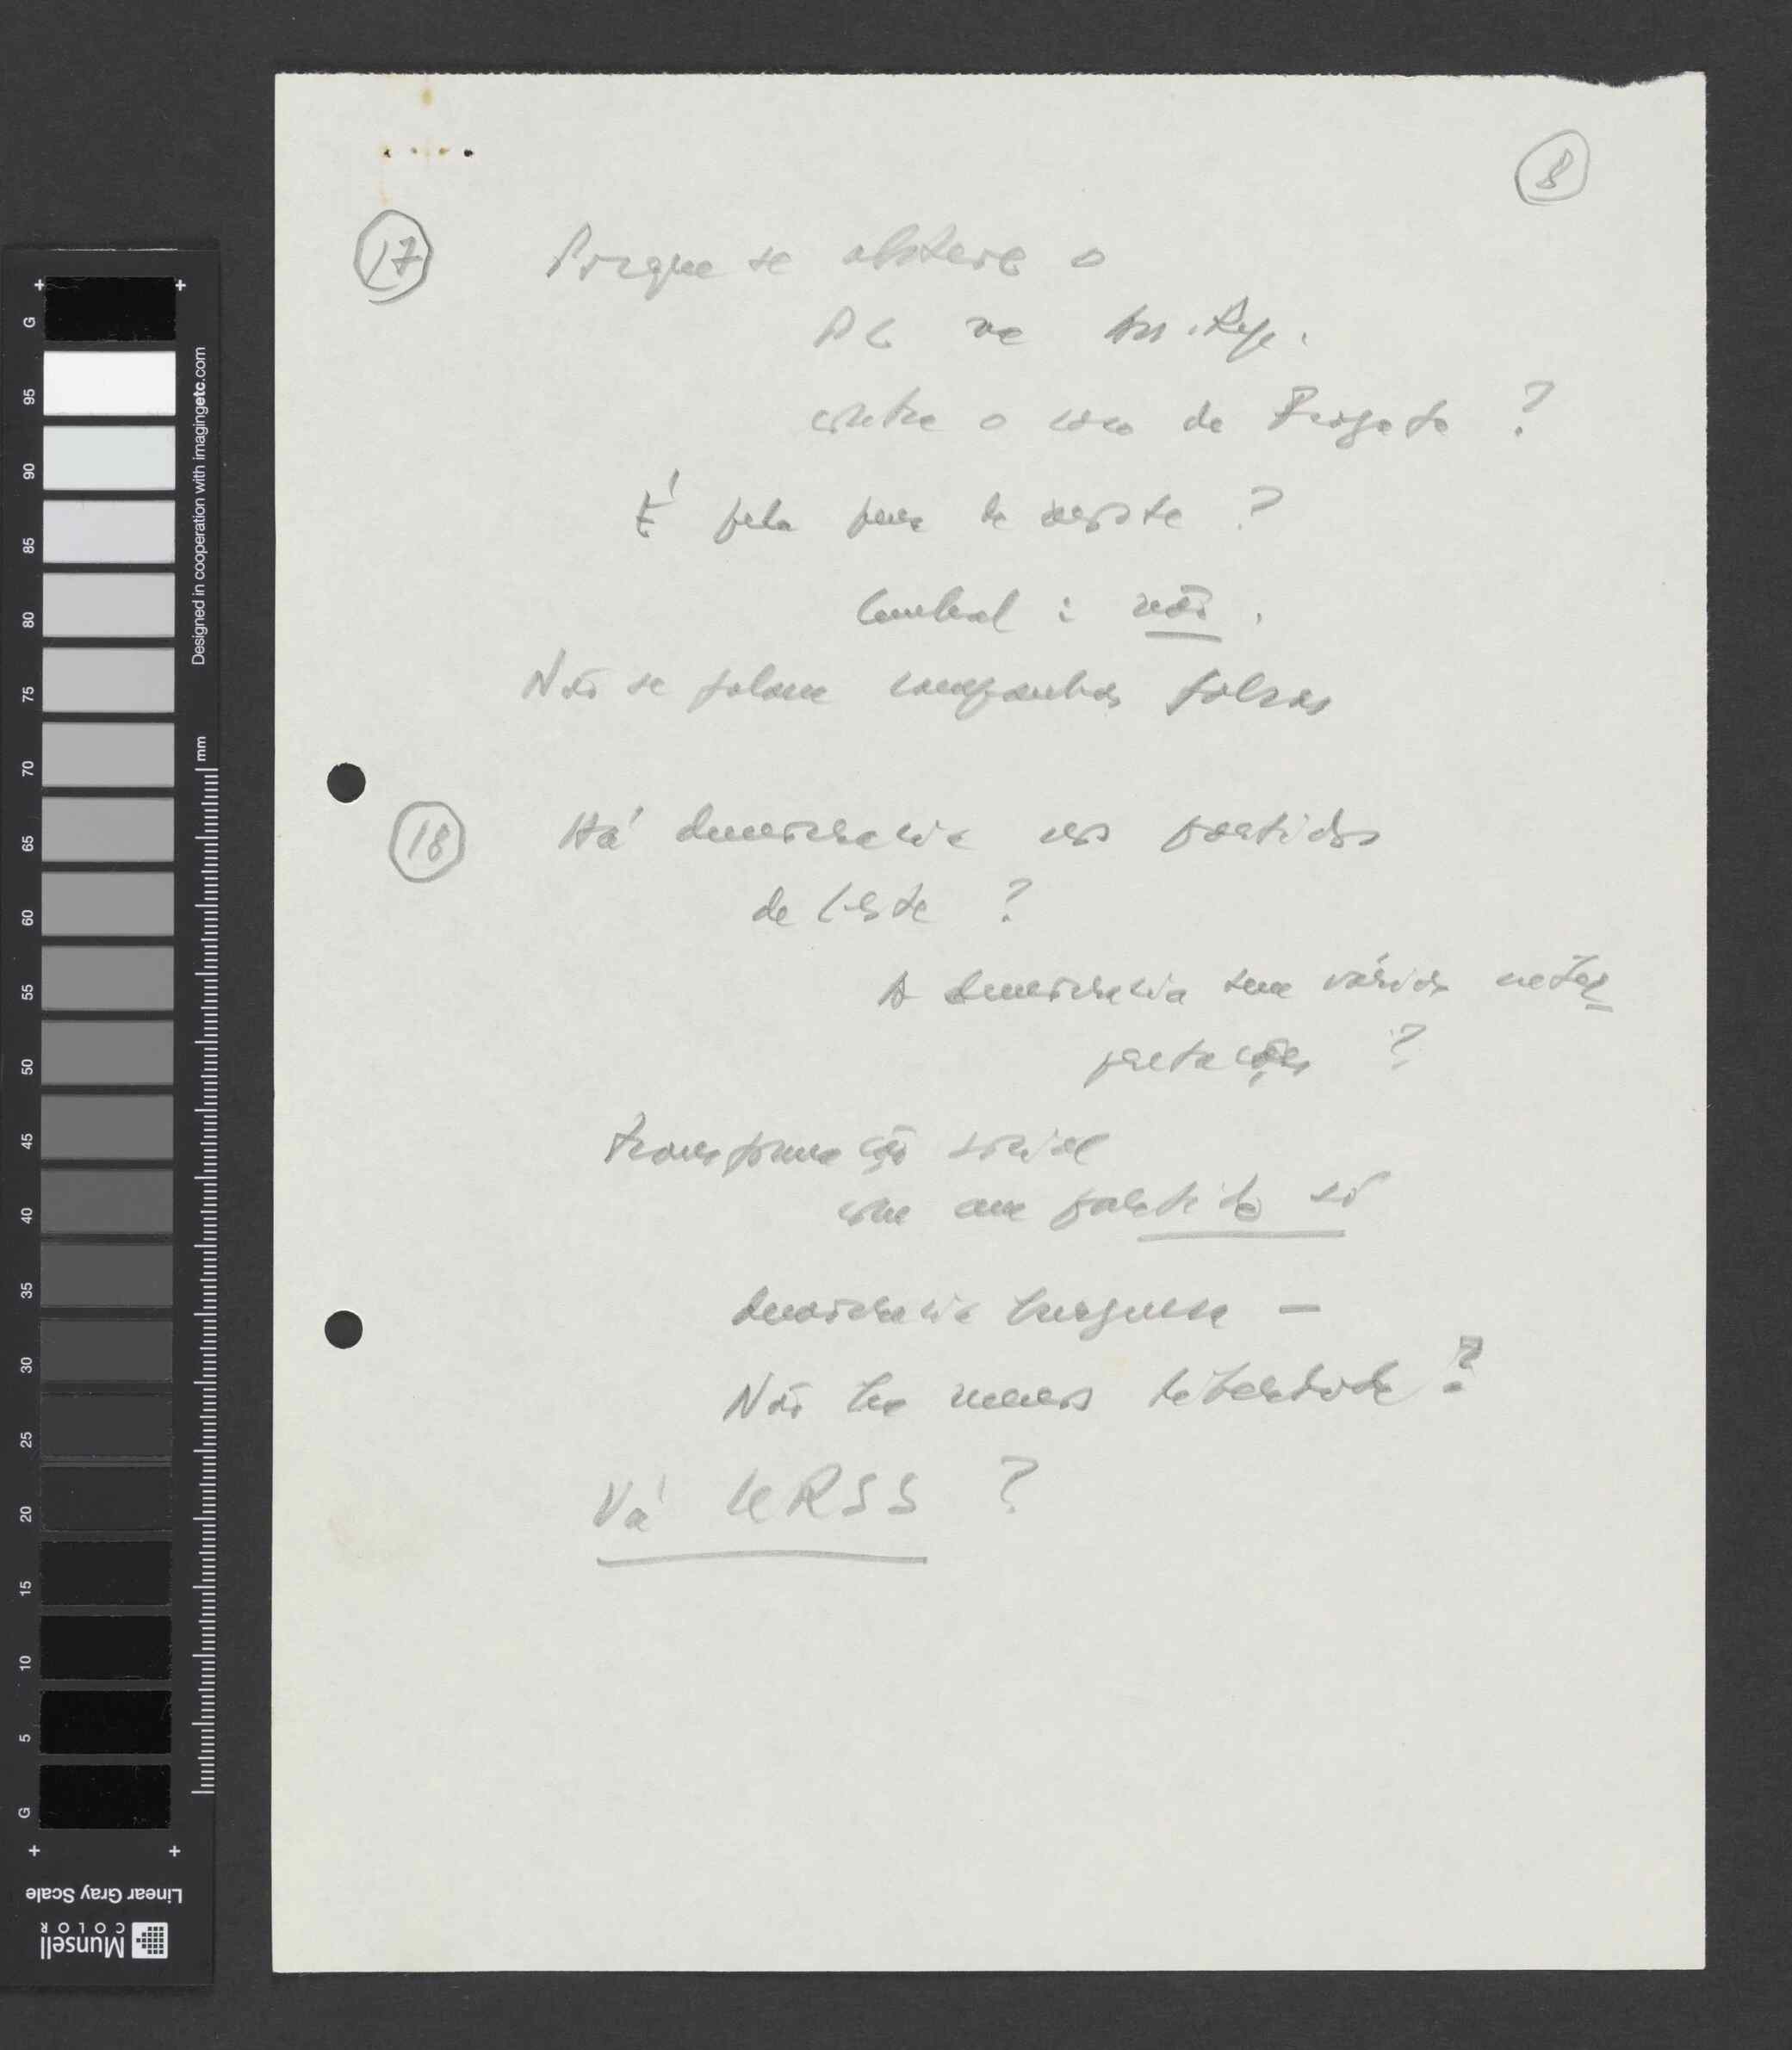 8
17 Porque se absteve o
PC na Ass. Rep.
contra o caso de Fragata ?
É pela pena de morte ?
Cunhal : não .
Não se falam campanhas falsas
18 Há democracia nos partidos
de Leste ?
A democracia tem várias inter-
pretações ?
transformação social
com um partido só
democracia burguesa —
Não há menos liberdade ?
Vá URSS ?
G
95
90
85
80
75
70
65
60
55
50
45
40
35
30
25
20
15
10
5
G
mm
Designed in cooperation with imagingetc.com
Linear Gray Scale
Munsell
COLOR